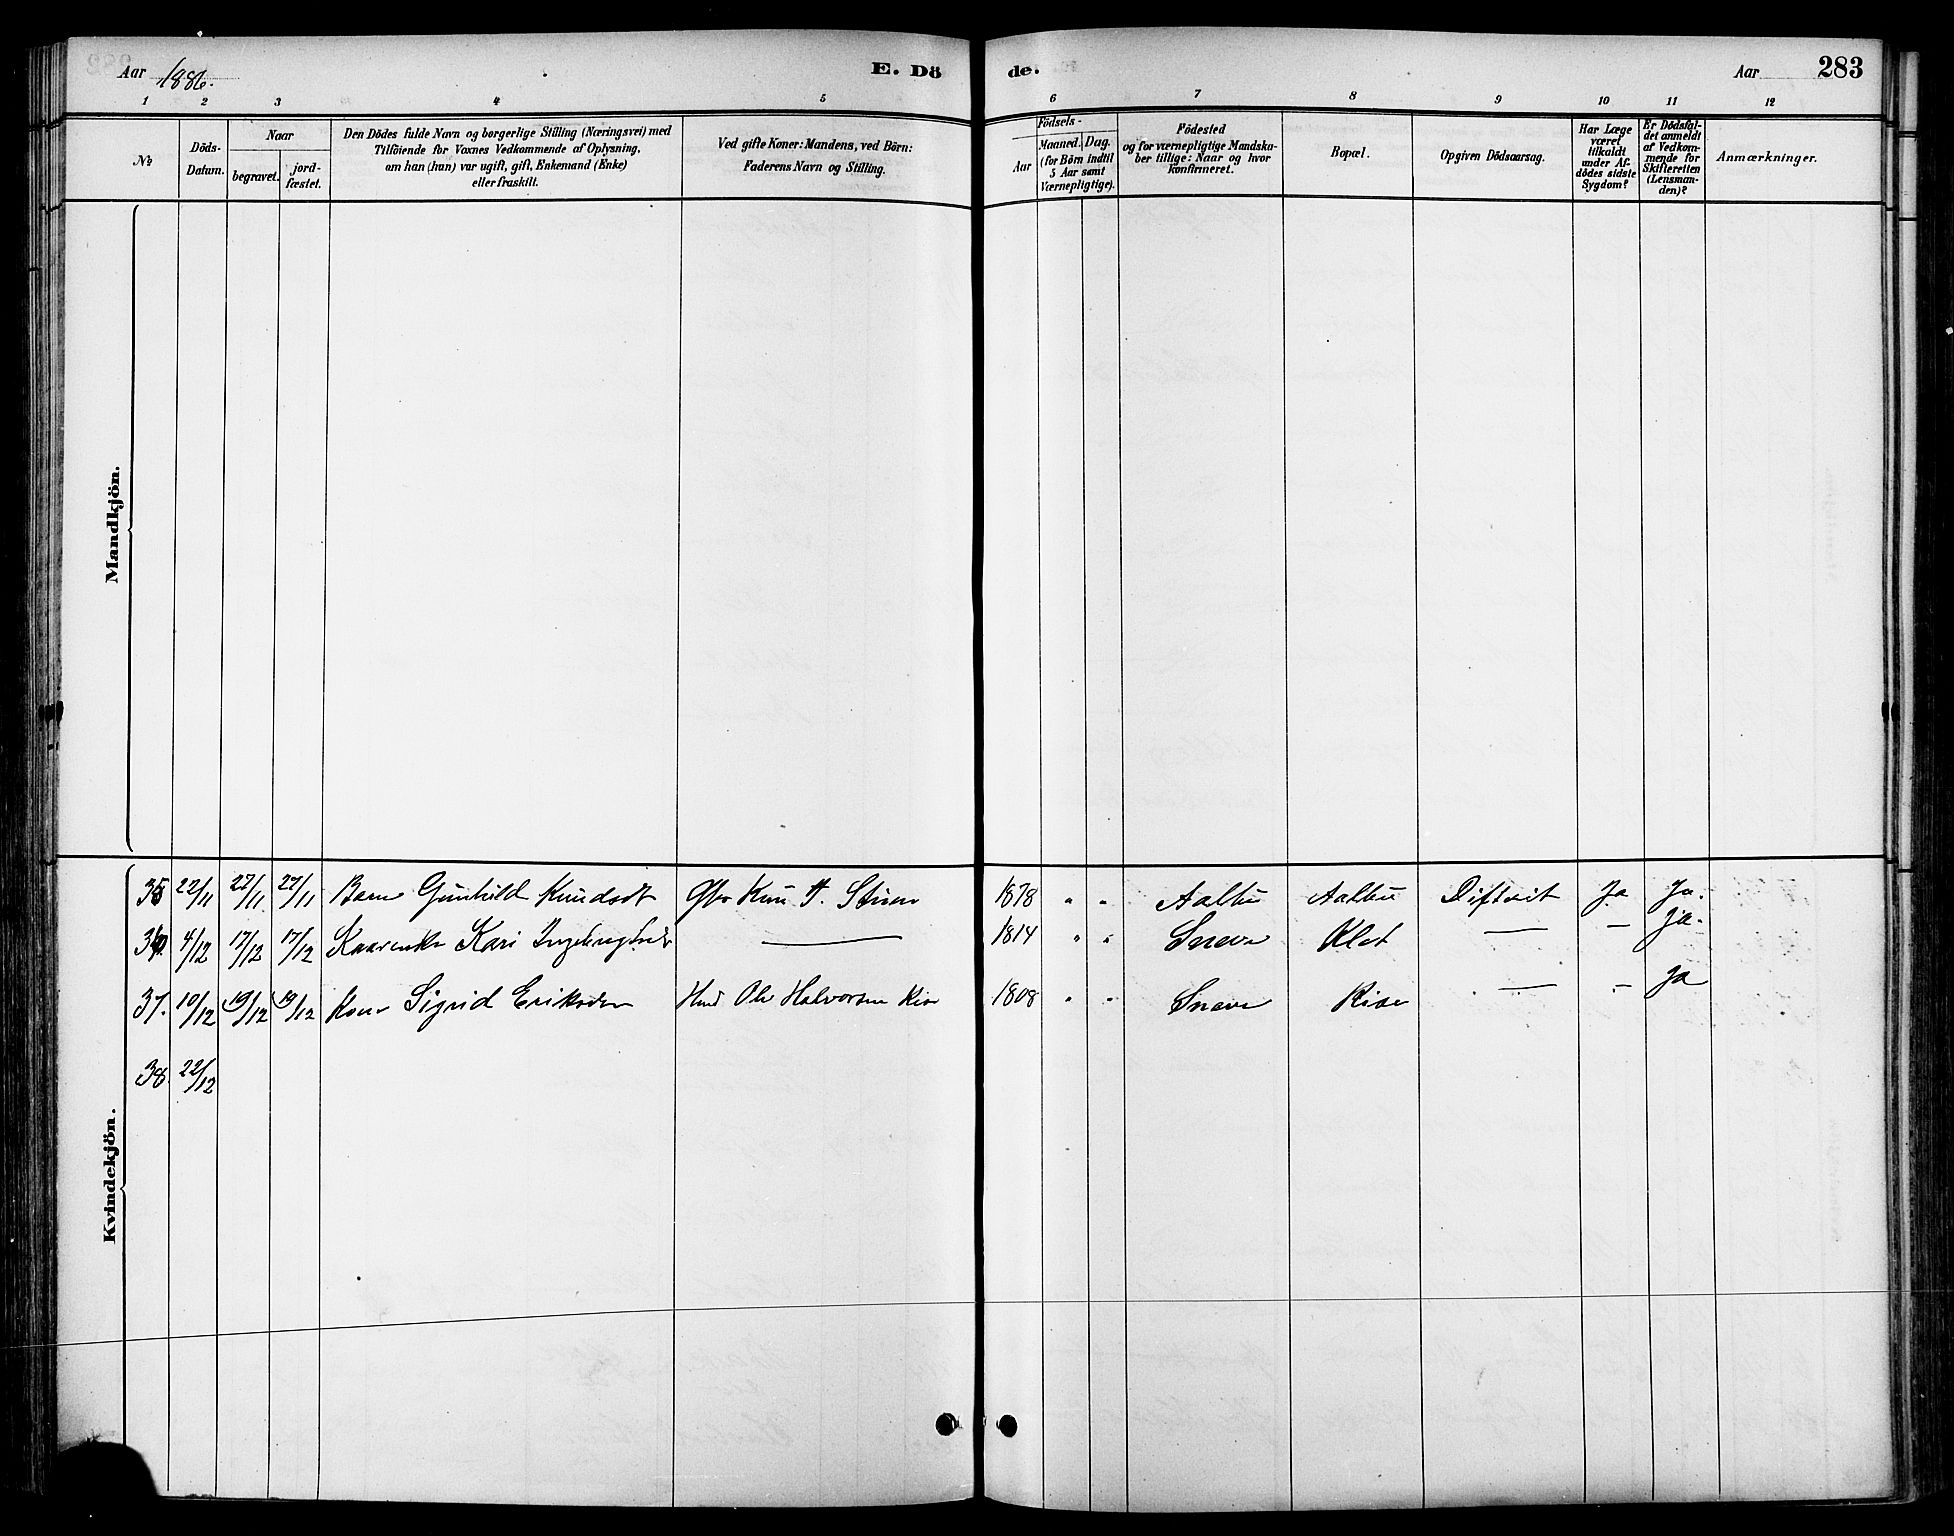 Aar 1886.
E. Dö
de.
Aar
283
1 2 3 4 5 6 7 8 9 10 11 12
No
Döds-
Datum.
Naar
begravet.
jord-
fæstet.
Den Dödes fulde Navn og borgerlige Stilling (Næringsvei) med
Tilföiende for Voxnes Vedkommende af Oplysning,
om han (hun) var ugift, gift, Enkemand (Enke)
eller fraskilt.
Ved gifte Koner: Mandens, ved Börn:
Faderens Navn og Stilling.
Födsels-
Aar
Maaned. Dag.
(for Börn indtil
5 Aar samt
Værnepligtige).
Födested
og for værnepligtige Mandska-
ber tillige: Naar og hvor
konfirmeret.
Bopæl.
Opgiven Dödsaarsag.
Har Læge
været
tilkaldt
under Af-
dödes sidste
Sygdom?
Er Dödsfal-
det anmeldt
af Vedkom-
mende for
Skifteretten
(Lensman-
den)?
Anmærkninger.
Mandkjön.
Kvindekjön.
35 22/11 27/11 27/11 Barn Gunhild Knudsdt 1878 " " Aalbu Aalbu Diftrit Ja Ja.
36. 4/12 17/12 17/12 Kari — 1814 " " Sneve Klet — — ja.
37. 10/12 19/12 19/12 Kone Sigrid Eriksdtr Ole Halvorsen 1808 " " Sneve Rise — — ja
38. 22/12